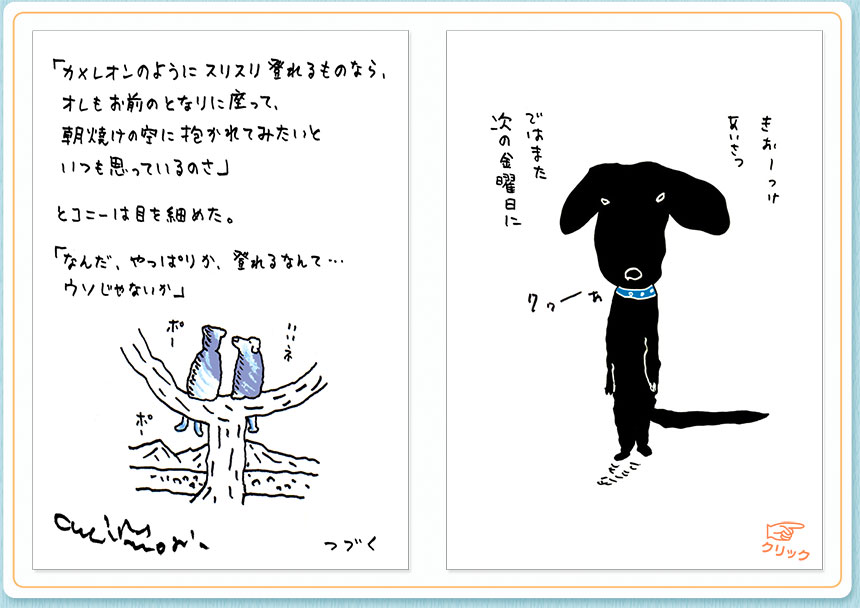 「カメレオンのようにスリスリ登れるものなら、
オレもお前のとなりに座って、
朝焼けの空に抱かれてみたいと
いつも思っているのさ」
とコニーは目を細めた。
「なんだ、やっぱりか、登れるなんて…
ウソじゃないか」
ポー
いいネ
ポー
つづく
きおーつけ
あいさつ
ではまた
次の金曜日に
クリック